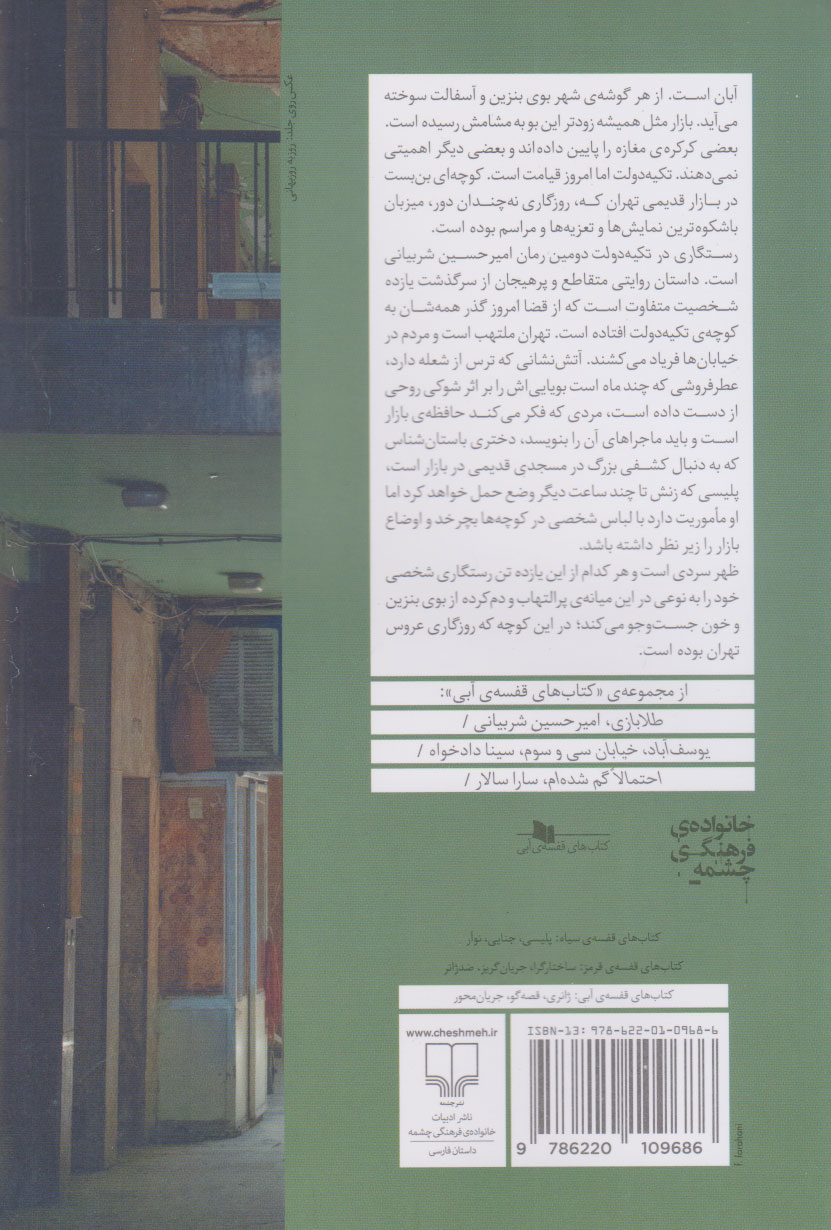 آبان است. از هر گوشه‌ی شهر بوی بنزین و آسفالت سوخته
می‌آید. بازار مثل همیشه زودتر این بو به مشامش رسیده است.
بعضی کرکره‌ی مغازه را پایین داده‌اند و بعضی دیگر اهمیتی
نمی‌دهند. تکیه‌دولت اما امروز قیامت است. کوچه‌ای بن‌بست
در بازار قدیمی تهران که، روزگاری نه‌چندان دور، میزبان
باشکوه‌ترین نمایش‌ها و تعزیه‌ها و مراسم بوده است.
رستگاری در تکیه‌دولت دومین رمان امیرحسین شربیانی
است. داستان روایتی متقاطع و پرهیجان از سرگذشت یازده
شخصیت متفاوت است که از قضا امروز گذر همه‌شان به
کوچه‌ی تکیه‌دولت افتاده است. تهران ملتهب است و مردم در
خیابان‌ها فریاد می‌کشند. آتش‌نشانی که ترس از شعله دارد،
عطرفروشی که چند ماه است بویایی‌اش را بر اثر شوکی روحی
از دست داده است، مردی که فکر می‌کند حافظه‌ی بازار
است و باید ماجراهای آن را بنویسد، دختری باستان‌شناس
که به دنبال کشفی بزرگ در مسجدی قدیمی در بازار است،
پلیسی که زنش تا چند ساعت دیگر وضع حمل خواهد کرد اما
او مأموریت دارد با لباس شخصی در کوچه‌ها بچرخد و اوضاع
بازار را زیر نظر داشته باشد.
ظهر سردی است و هر کدام از این یازده تن رستگاری شخصی
خود را به نوعی در این میانه‌ی پرالتهاب و دم‌کرده از بوی بنزین
و خون جست‌وجو می‌کند؛ در این کوچه که روزگاری عروس
تهران بوده است.
از مجموعه‌ی «کتاب‌های قفسه‌ی آبی»:
طلابازی، امیرحسین شربیانی /
یوسف‌آباد، خیابان سی و سوم، سینا دادخواه /
احتمالاً گم شده‌ام، سارا سالار /
خانواده‌ی
فرهنگی
چشمه
کتاب‌های قفسه‌ی آبی
کتاب‌های قفسه‌ی سیاه: پلیسی، جنایی، نوآر
کتاب‌های قفسه‌ی قرمز: ساختارگرا، جریان‌گریز، ضدژانر
کتاب‌های قفسه‌ی آبی: ژانری، قصه‌گو، جریان‌محور
www.cheshmeh.ir
نشرچشمه
ناشر ادبیات
خانواده‌ی فرهنگی چشمه
داستان فارسی
ISBN-13: 978-622-01-0968-6
9 786220 109686
F. farahani
عکس روی جلد: روزبه روزبهانی